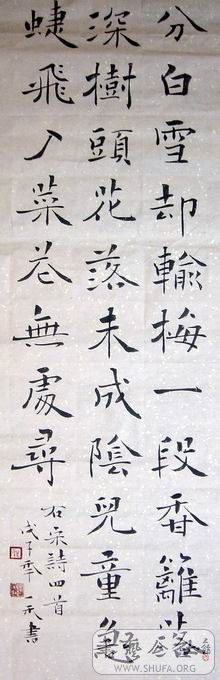 分白雪却輸梅一段香籬落
深樹頭花落未成陰兒童急
蜨飛入菜花無處尋
右宋詩四首
戊子年一書
WWW.SHUFA.ORG